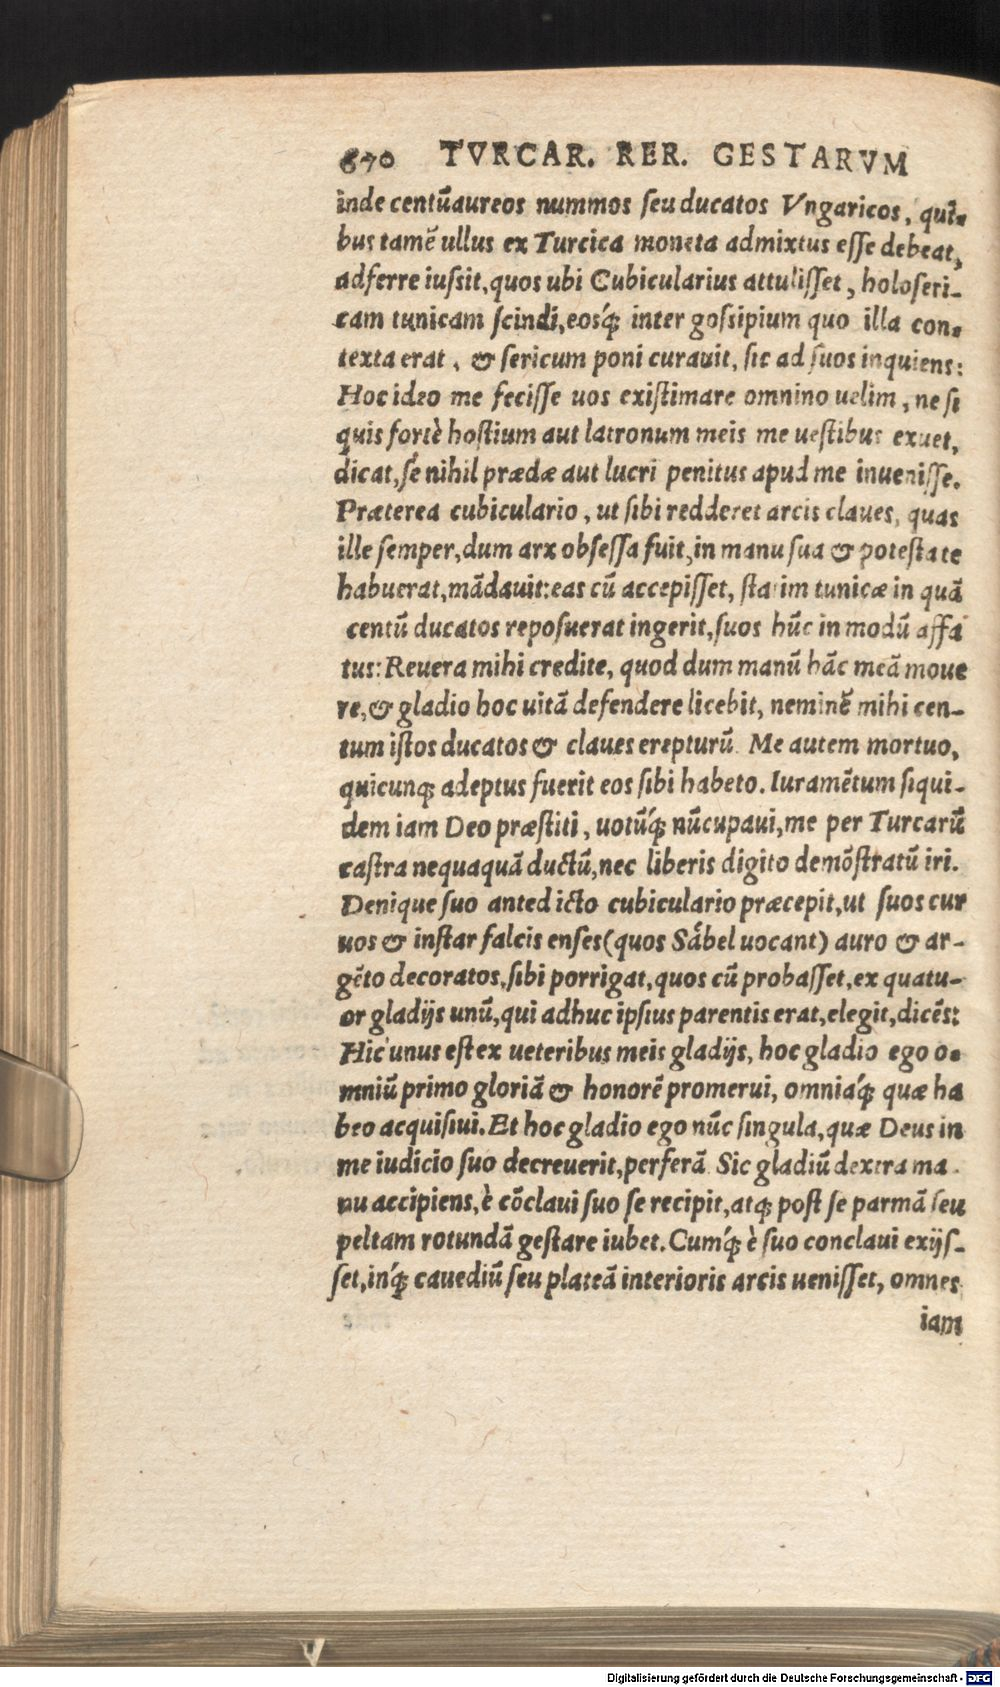 670 TVRCAR. RER. GESTARVM
inde centũ aureos nummos ſeu ducatos Vngaricos, qui-
bus tamẽ ullus ex Turcica moneta admixtus eſſe debeat,
adferre iuſsit, quos ubi Cubicularius attuliſſet, holoſeri-
cam tunicam ſcindi, eosq́; inter goſsipium quo illa con-
texta erat, & ſericum poni curauit, ſic ad ſuos inquiens:
Hoc ideo me feciſſe uos exiſtimare omnino uelim, ne ſi
quis fortè hoſtium aut latronum meis me ueſtibus exuet,
dicat, ſe nihil prædæ aut lucri penitus apud me inueniſſe.
Præterea cubiculario, ut ſibi redderet arcis claues, quas
ille ſemper, dum arx obſeſſa fuit, in manu ſua & poteſtate
habuerat, mãdauit: eas cũ accepiſſet, ſtatim tunicæ in quã
centũ ducatos repoſuerat ingerit, ſuos hũc in modũ affa
tus: Reuera mihi credite, quod dum manũ hãc meã moue
re, & gladio hoc uitã defendere licebit, neminẽ mihi cen-
tum iſtos ducatos & claues erepturũ. Me autem mortuo,
quicunq; adeptus fuerit eos ſibi habeto. Iuramẽtum ſiqui-
dem iam Deo præſtiti, uotũq́; nũcupaui, me per Turcarũ
caſtra nequaquã ductũ, nec liberis digito demõſtratũ iri.
Denique ſuo antedicto cubiculario præcepit, ut ſuos cur
uos & inſtar falcis enſes (quos Sábel uocant) auro & ar-
gẽto decoratos, ſibi porrigat, quos cũ probaſſet, ex quatu-
or gladijs unũ, qui adhuc ipſius parentis erat, elegit, dicẽs:
Hic unus eſt ex ueteribus meis gladijs, hoc gladio ego o-
mniũ primo gloriã & honorẽ promerui, omniaq́; quæ ha
beo acquiſiui. Et hoc gladio ego nũc ſingula, quæ Deus in
me iudicio ſuo decreuerit, perferã. Sic gladiũ dextra ma-
nu accipiens, è cõclaui ſuo ſe recipit, atq; poſt ſe parmã ſeu
peltam rotundã geſtare iubet. Cumq́; è ſuo conclaui exijſ-
ſet, inq́; cauediũ ſeu plateã interioris arcis ueniſſet, omnes
iam
Digitalisierung gefördert durch die Deutsche Forschungsgemeinschaft - DFG